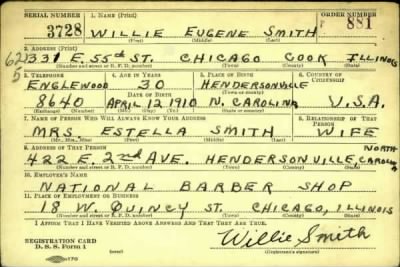 SERIAL NUMBER 1. NAME (Print) ORDER NUMBER
3728 WILLIE EUGENE SMITH 881
(First) (Middle) (Last)
2. ADDRESS (Print)
331 E. 55TH ST. CHICAGO COOK ILLINOIS
(Number and street or R. F. D. number) (Town) (County) (State)
3. TELEPHONE 4. AGE IN YEARS 5. PLACE OF BIRTH 6. COUNTRY OF CITIZENSHIP
ENGLEWOOD 30 HENDERSONVILLE
DATE OF BIRTH
8640 APRIL 12 1910 N. CAROLINA U.S.A.
7. NAME OF PERSON WHO WILL ALWAYS KNOW YOUR ADDRESS 8. RELATIONSHIP OF THAT PERSON
MRS. ESTELLA SMITH WIFE
(Mr., Mrs., Miss) (First) (Middle) (Last)
9. ADDRESS OF THAT PERSON NORTH
422 E. 2ND AVE. HENDERSONVILLE, CAROLINA
(Number and street or R. F. D. number) (Town) (County) (State)
10. EMPLOYER'S NAME
NATIONAL BARBER SHOP
11. PLACE OF EMPLOYMENT OR BUSINESS
18 W. QUINCY ST. CHICAGO, ILLINOIS
(Number and street or R. F. D. number) (Town) (County) (State)
I AFFIRM THAT I HAVE VERIFIED ABOVE ANSWERS AND THAT THEY ARE TRUE.
REGISTRATION CARD Willie Smith
D. S. S. Form 1 (over) (Registrant's signature)